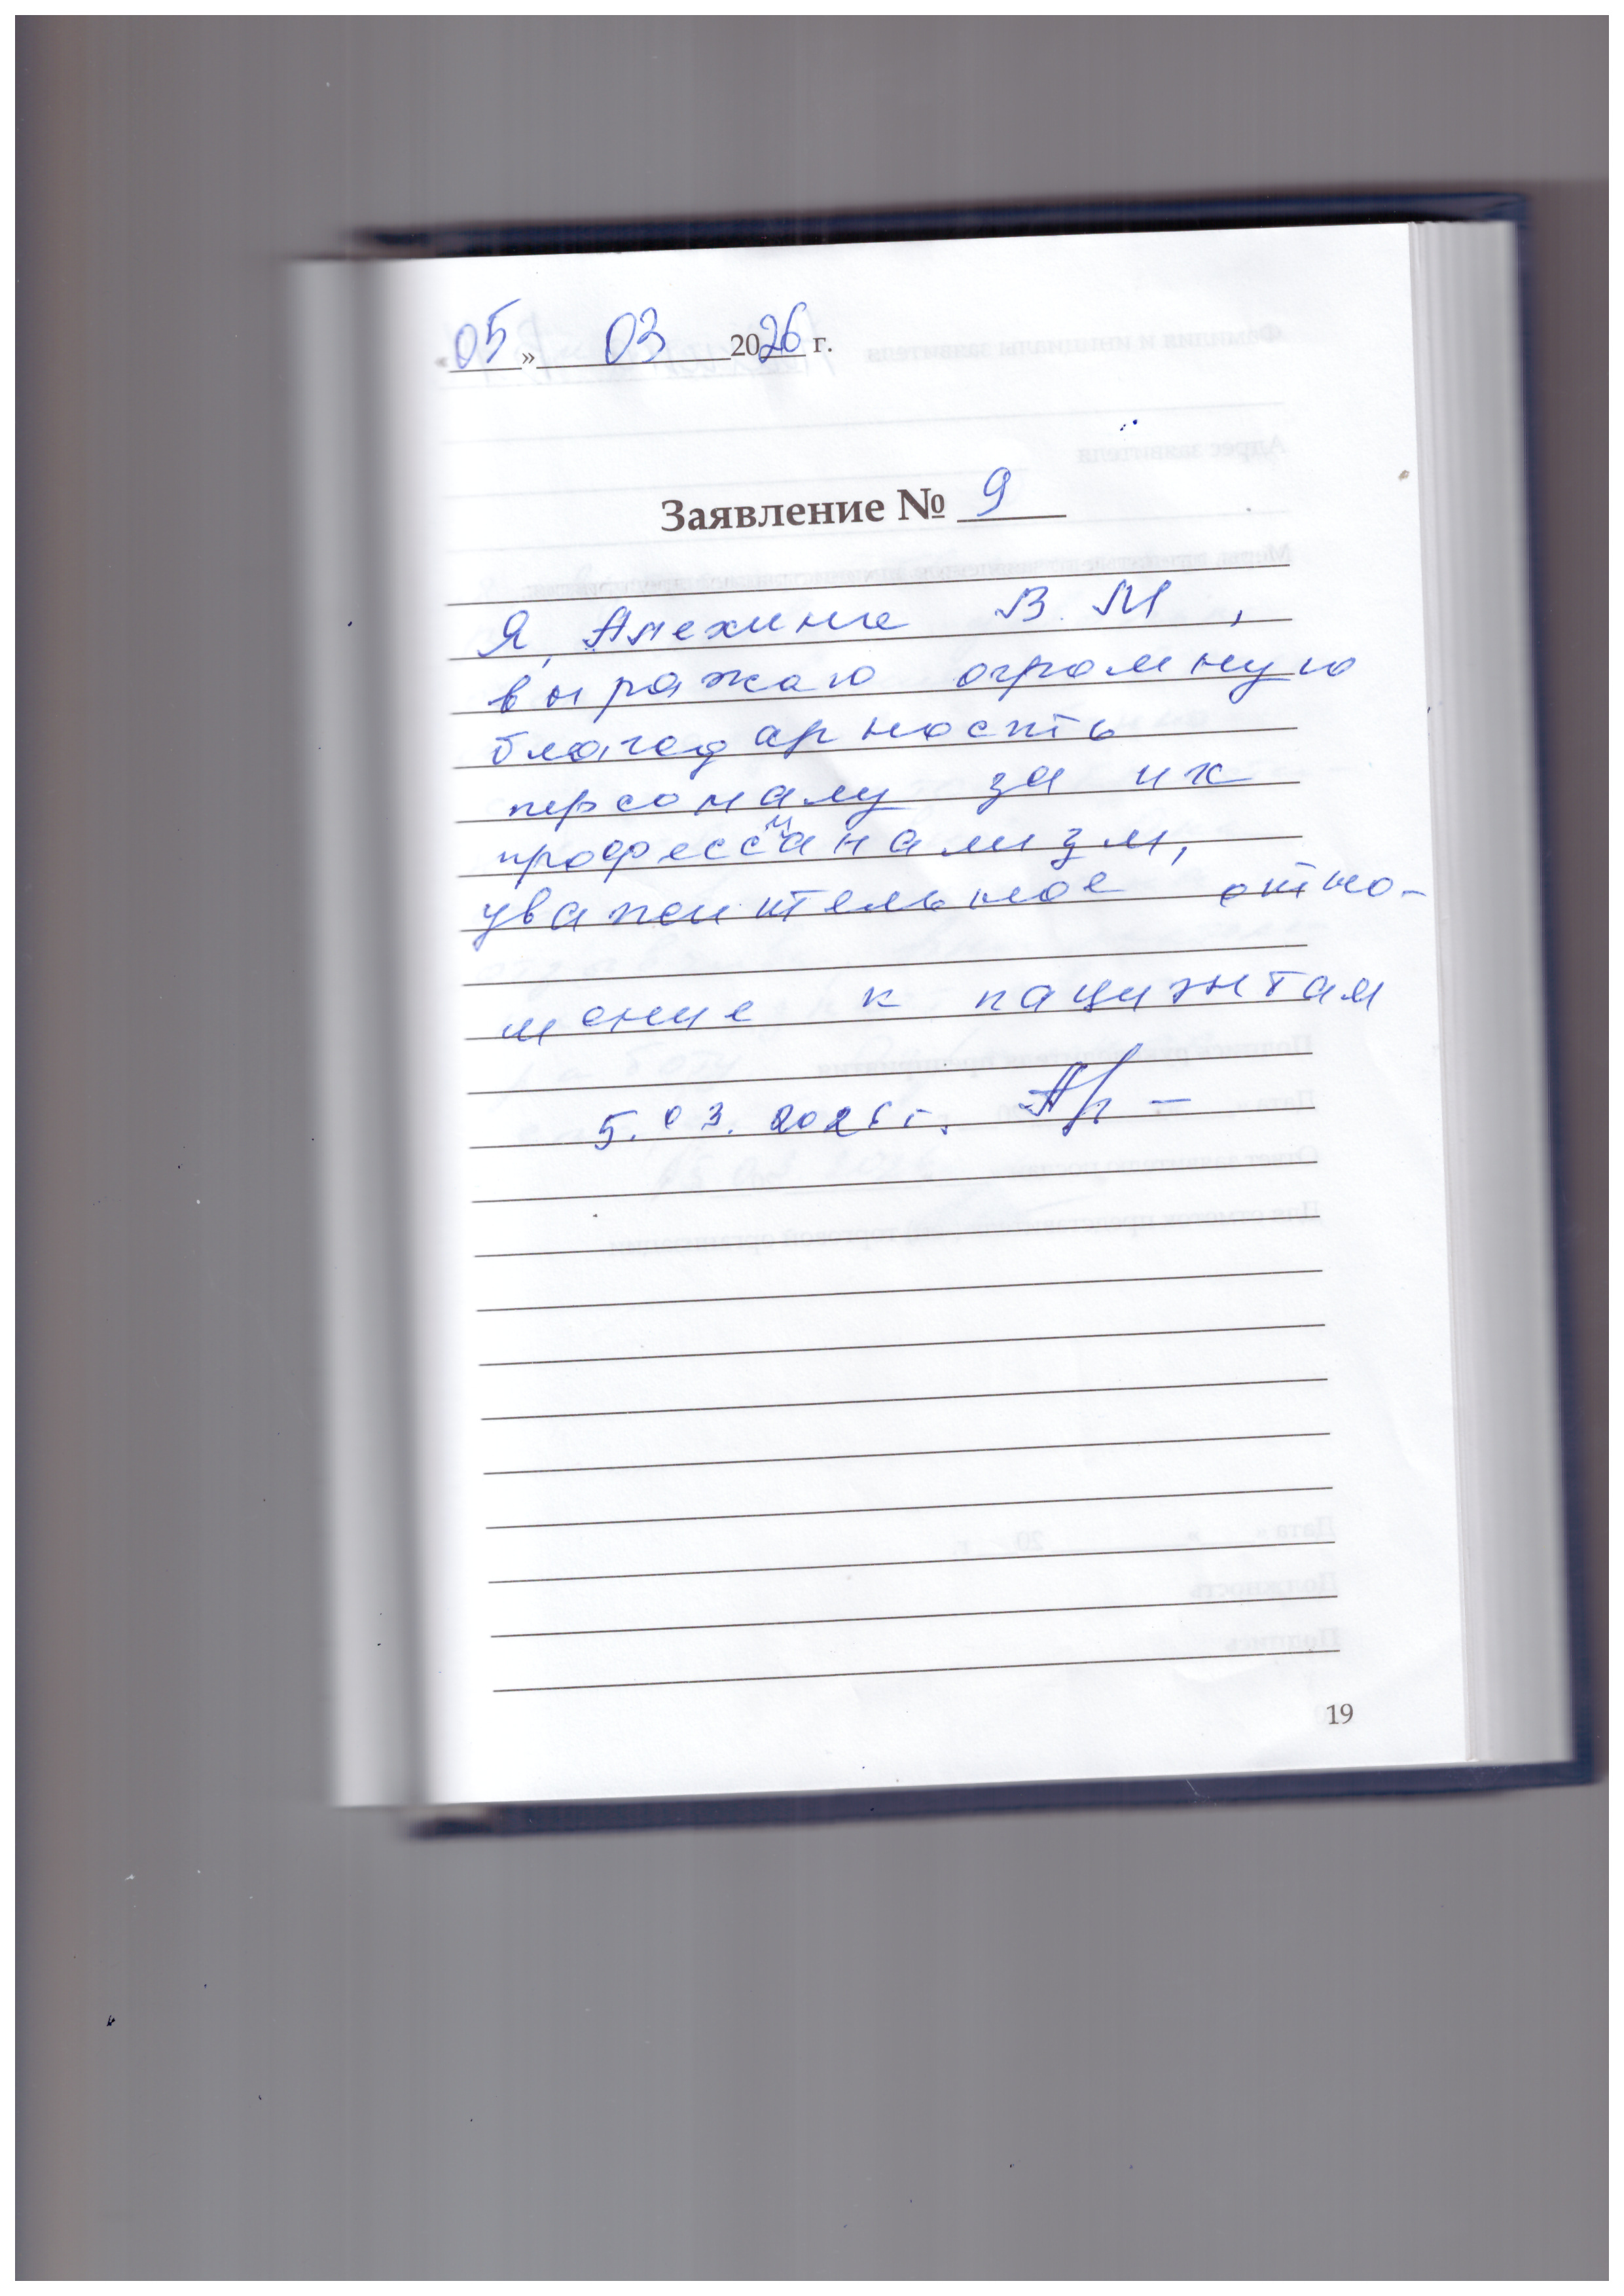 «05» 03 2026 г.
Заявление № 9
Я, Алехина В. М,
выражаю огромную
благодарность
персоналу за их
профессианализм,
уважительное отно-
шение к пациэнтам
5.03.2026 г.
19